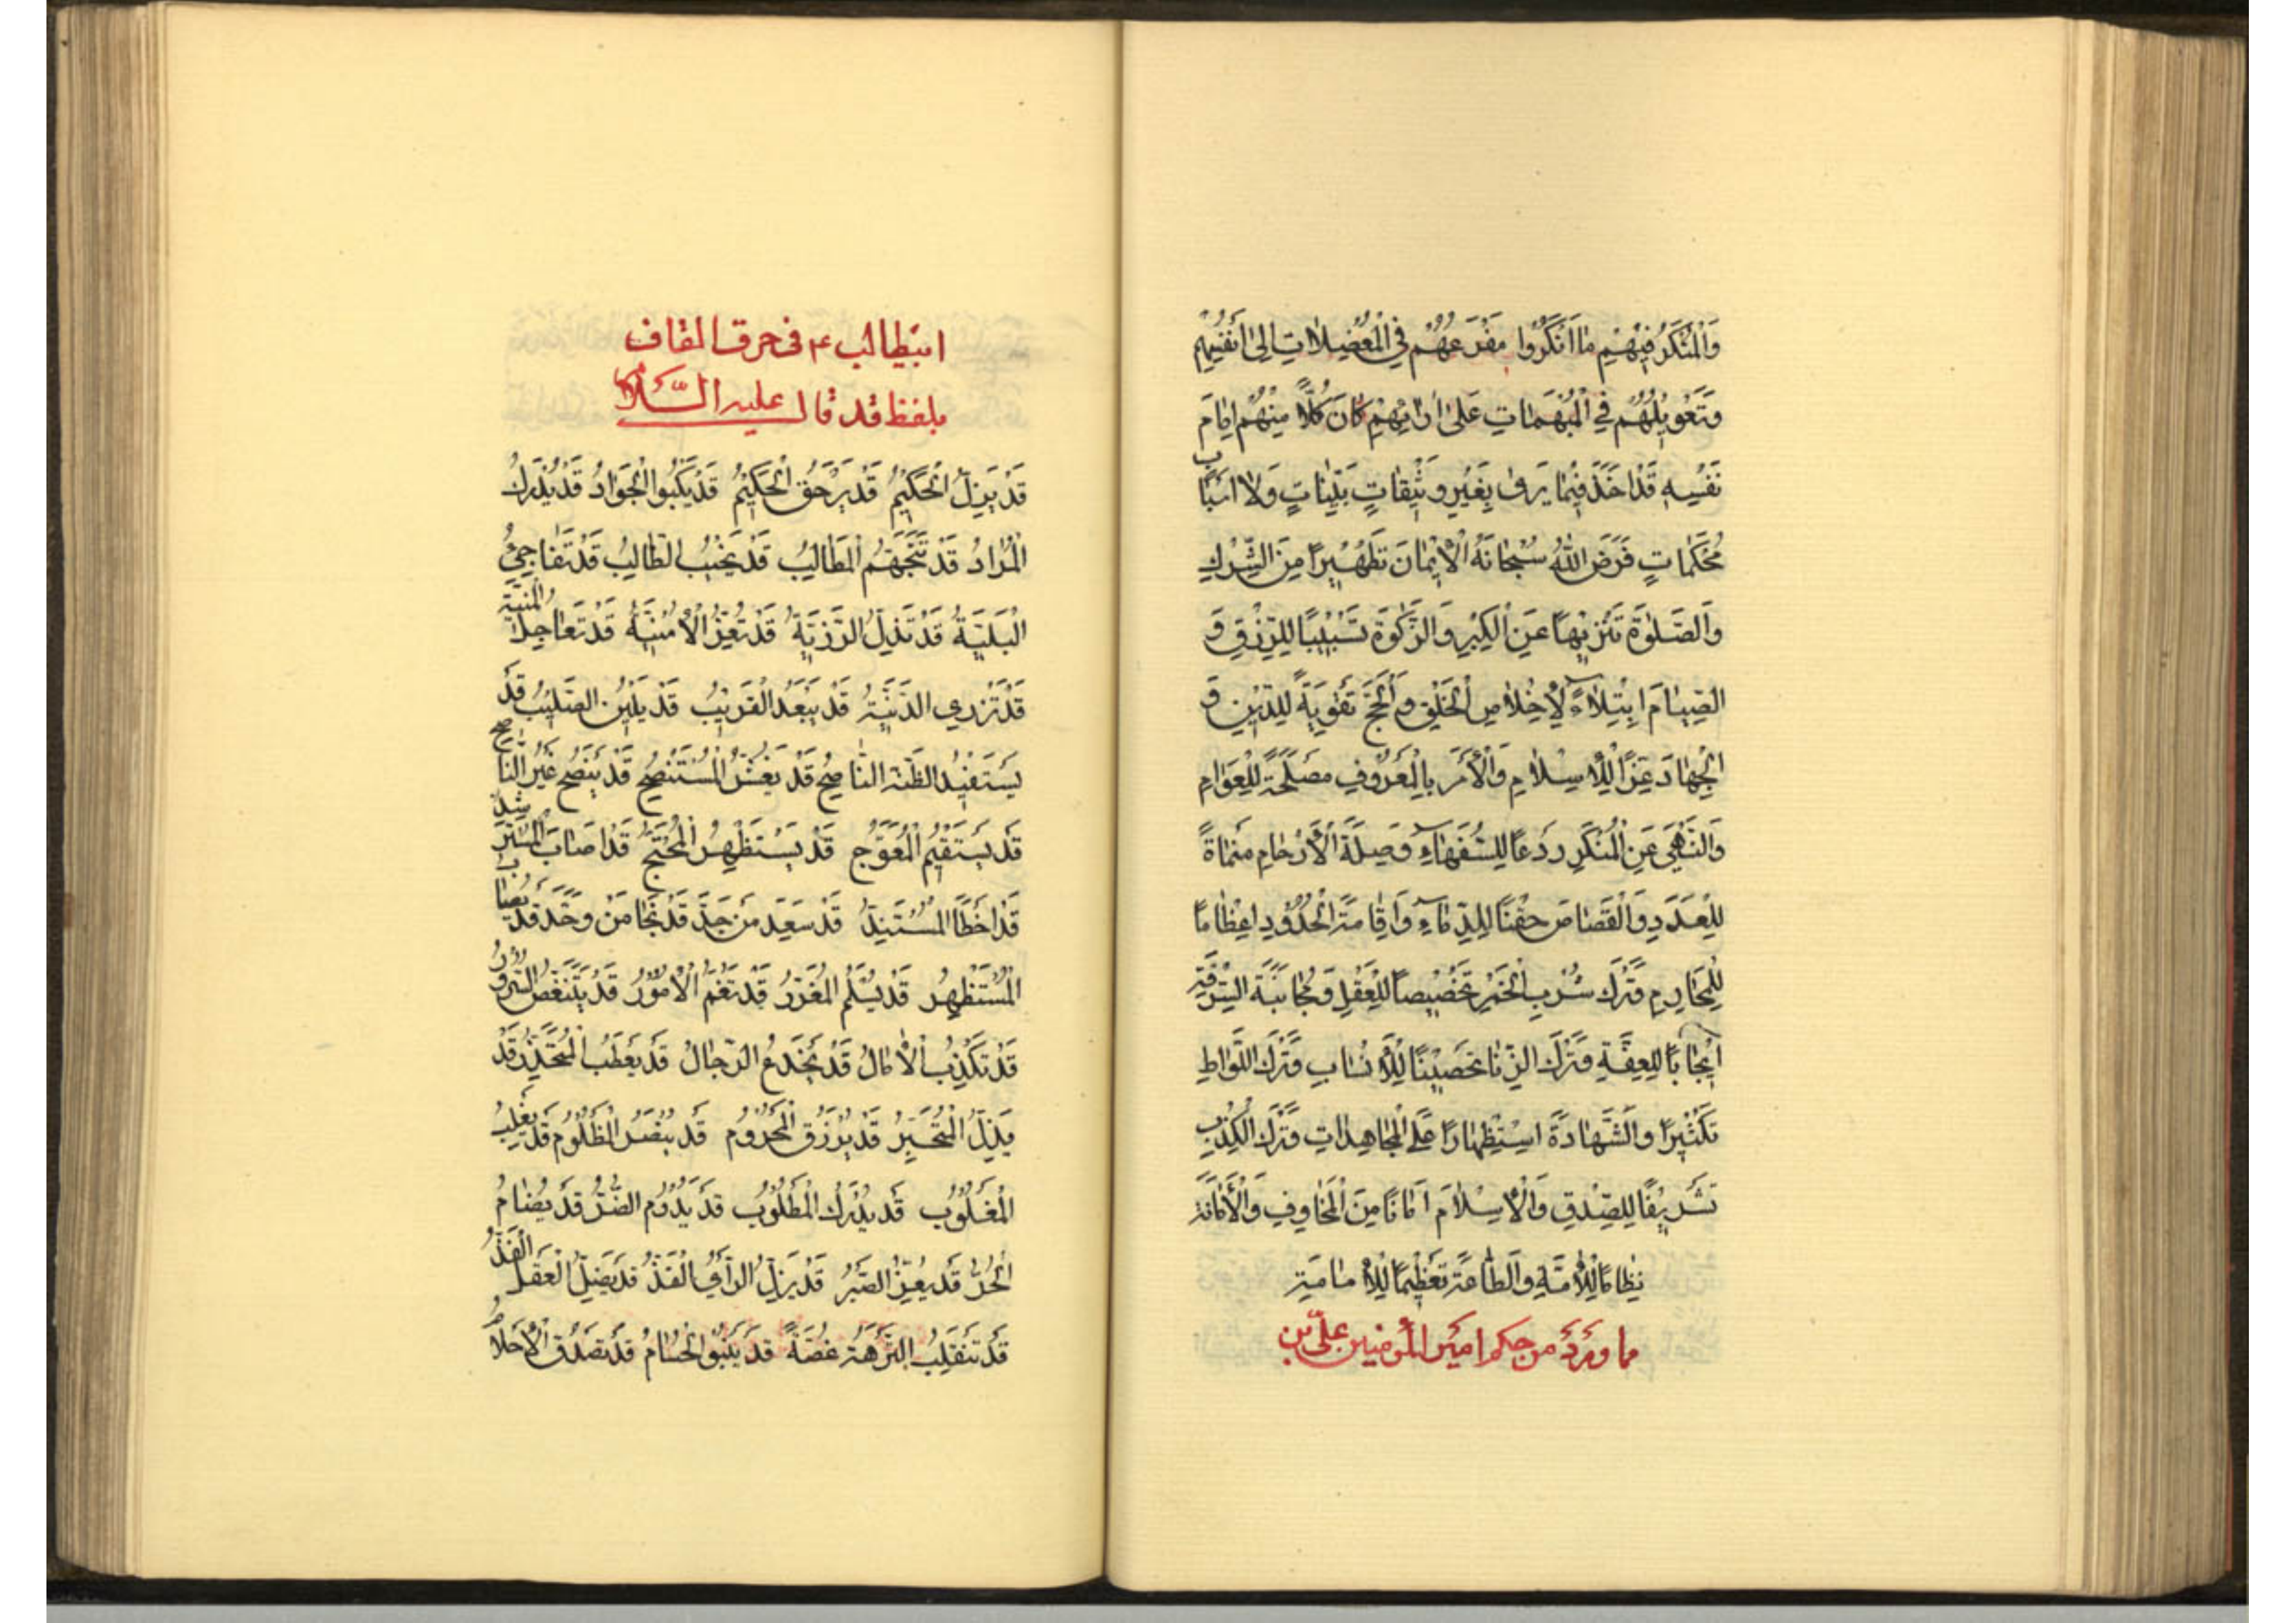 وَالْمُنْكَرُ فِيهْمِ مٰا اَنْكَرُوا مَفْزَعُهُمْ فِي الْمُعْضِلاٰتِ اِلىٰ اَنْفُسِهِمْ
وَتَعْوِيلُهُمْ فِي الْمُبْهَمٰاتِ عَلىٰ اٰرٰائِهِمْ كَانَ كُلاًّ مِنْهُمْ اِمٰامَ
نَفْسِهِ قَدْ اَخَذَ فِيمٰا يَرىٰ بِغَيْرِ وَثِيقٰاتٍ بَيِّنٰاتٍ وَلاٰ اسَبٰابٍ
مُحْكَمٰاتٍ فَرَضَ اللهُ سُبْحٰانَهُ الْاِيمٰانَ تَطْهِيرًا مِنَ الشِّرْكِ
وَالصَّلوٰةَ تَنْزِيهًا عَنِ الْكِبْرِ وَالزَّكٰوةَ تَسْبِيبًا لِلرِّزْقِ وَ
الصِّيٰامَ اِبْتِلاٰءً لِاِخْلاٰصِ الْخَلْقِ وَالْحَجَّ تَقْوِيَةً لِلدِّينِ وَ
الْجِهٰادَ عِزًّا لِلْاِسْلاٰمِ وَالْاَمْرَ بِالْمَعْرُوفِ مَصْلَحَةً لِلْعَوٰامِ
وَالنَّهْيَ عَنِ الْمُنْكَرِ رَدْعًا لِلسُّفَهٰاءِ وَصِلَةَ الْاَرْحٰامِ مَنْمٰاةً
لِلْعَدَدِ وَالْقَصٰاصَ حِقْنًا لِلدِّمٰاءِ وَاِقٰامَةَ الْحُدُودِ اِعْظٰامًا
لِلْمَحٰارِمِ وَتَرْكَ شُرْبِ الْخَمْرِ تَخْصِيصًا لِلْعَقْلِ وَمُجٰانَبَةَ السِّرْقَةِ
اِيجٰابًا لِلْعِفَّةِ وَتَرْكَ الزِّنٰا تَحْصِينًا لِلْاَنْسٰابِ وَتَرْكَ اللِّوٰاطِ
تَكْثِيرًا وَالشَّهٰادَةَ اسْتِظْهٰارًا عَلَى الْمُجٰاهِدٰاتِ وَتَرْكَ الْكِذْبِ
تَشْرِيفًا لِلصِّدْقِ وَالْاِسْلاٰمَ اَمٰانًا مِنَ الْمَخٰاوِفِ وَالْاَمٰانَةَ
نِظٰامًا لِلْاُمَّةِ وَالطّٰاعَةَ تَعْظِيمًا لِلْاِمٰامَةِ
مما وَرَدَ من حِكم امَيرالمُؤمنِين عَلىّ بن
ابيطالب ع فى حرف القاف
بلفظ قد قال عليه السَّلام
قَدْ يَزِلُّ الْحَكِيمُ قَدْ يَزْهَقُ الْحَكِيمُ قَدْ يَكْبُوا الْجَوٰادُ قَدْ يُدْرَكُ
الْمُرٰادُ قَدْ تَتَجَهَّمُ الْمَطٰالِبُ قَدْ يَخِيبُ الطّٰالِبُ قَدْ تُفٰاجِئُ
الْبَلِيَّةُ قَدْ تَذِلُّ الرَّزِيَّةُ قَدْ تَعِزُّ الْاُمْنِيَّةُ قَدْ تُعٰاجِلُ الْمَنِيَّةُ
قَدْ تَزْرِي الدَّنِيَّةُ قَدْ يَبْعُدُ الْقَرِيبُ قَدْ يَلِينُ الصَّلِيبُ قَدْ
يَسْتَفِيدُ الظِّنَّةَ النّٰاصِحُ قَدْ يَغُشُّ الْمُسْتَنْصَحُ قَدْ يَنْصَحُ غَيْرُ النّٰاصِحِ
قَدْ يَسْتَقِيمُ الْمُعْوَجُّ قَدْ يَسْتَظْهِرُ الْمُحْتَجُّ قَدْ اَصٰابَ الْمُسْتَرْشِدُ
قَدْ اَخْطَأَ الْمُسْتَبِدُّ قَدْ سَعِدَ مَنْ جَدَّ قَدْ نَجٰا مَنْ وَحَّدَ قَدْ يُصٰابُ
الْمُسْتَظْهِرُ قَدْ يَسْلَمُ الْمُغَرِّرُ قَدْ تَعُمُّ الْاُمُورُ قَدْ يَتَنَغَّصُ السُّرُورُ
قَدْ تَكْذِبُ الْاٰمٰالُ قَدْ يُخْدَعُ الرِّجٰالُ قَدْ يَعْطَبُ الْمُتَحَذِّرُ قَدْ
يَذِلُّ الْمُتَجَبِّرُ قَدْ يُرْزَقُ الْمَحْرُومُ قَدْ يُنْصَرُ الْمَظْلُومُ قَدْ يَغْلِبُ
الْمَغْلُوبُ قَدْ يُدْرَكُ الْمَطْلُوبُ قَدْ يَدُومُ الضُّرُّ قَدْ يُضٰامُ
الْحُرُّ قَدْ يَعِزُّ الصَّبْرُ قَدْ يَزِلُّ الرَّأْيُ الْفَذُّ قَدْ يَضِلُّ الْعَقْلُ الْفَذُّ
قَدْ تَنْقَلِبُ النُّزْهَةُ غُصَّةً قَدْ يَنْبُو الْحُسٰامُ قَدْ تَصْدُقُ الْاَحْلاٰمُ